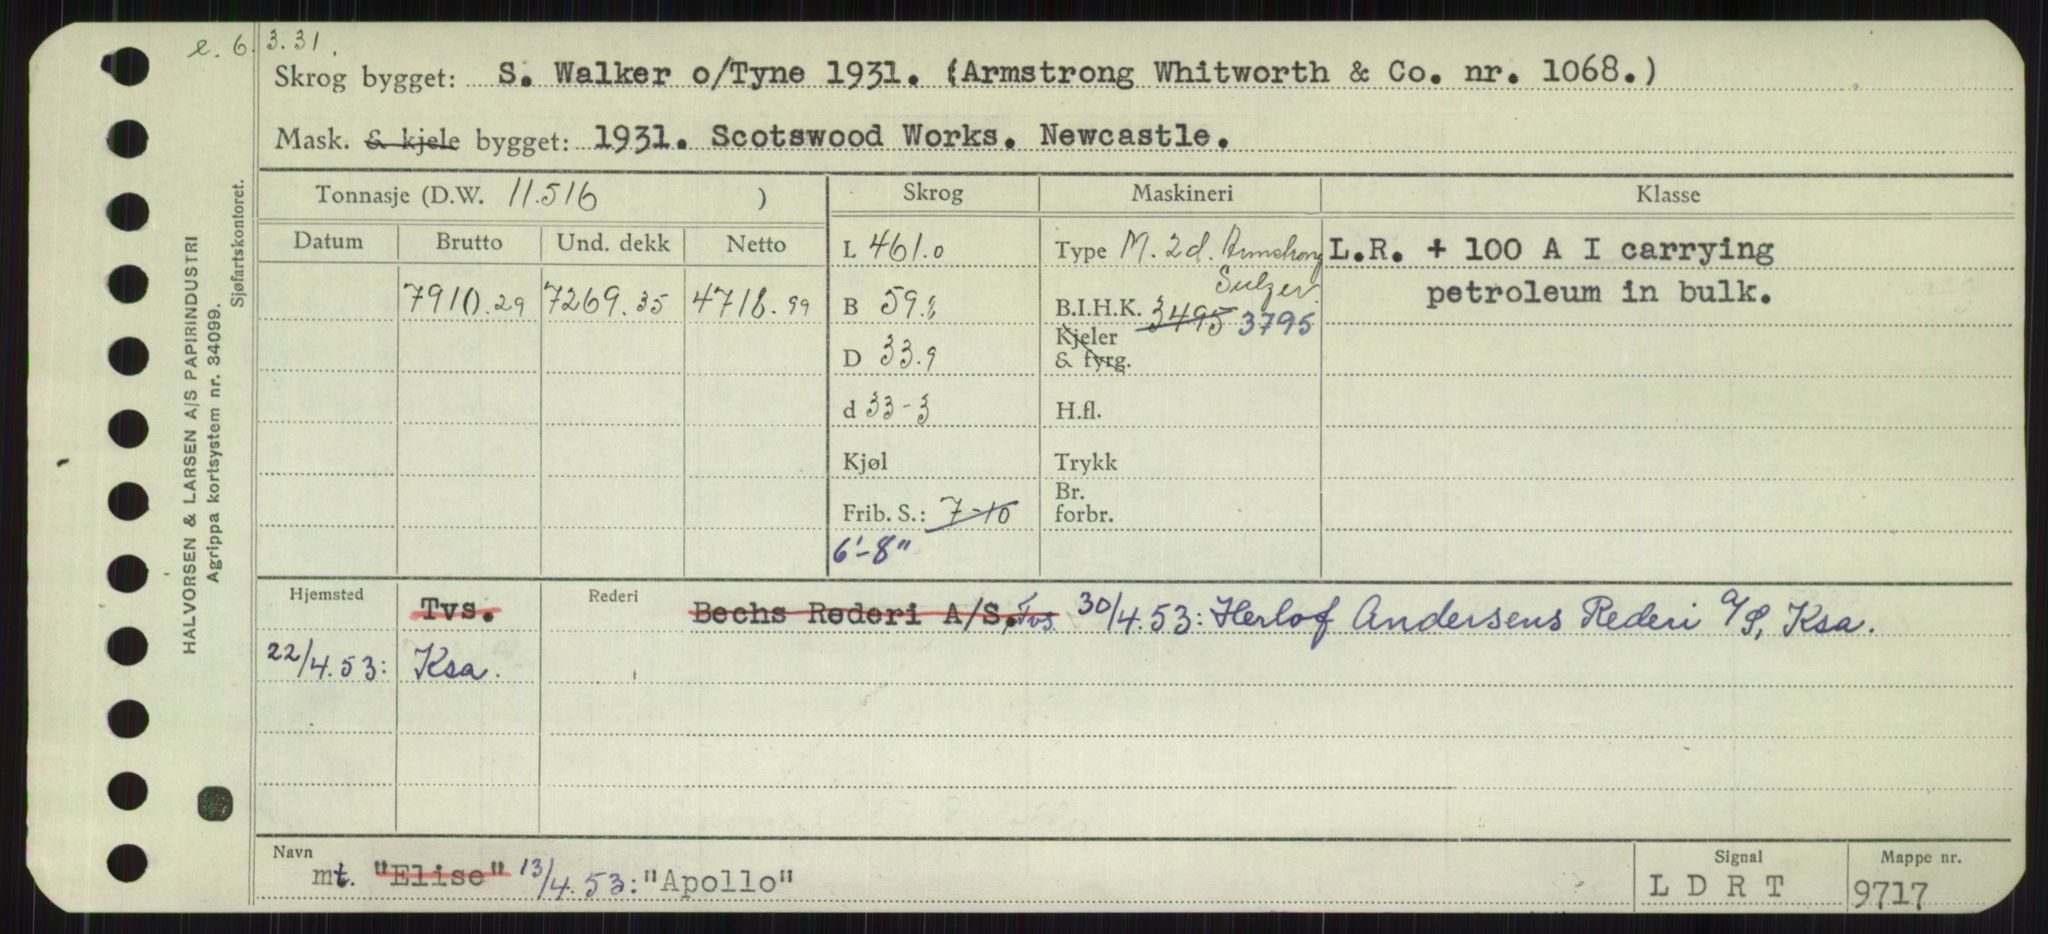 e. 6.3.31.
Skrog bygget: S. Walker o/Tyne 1931. (Armstrong Whitworth & Co. nr. 1068.)
Mask. & kjele bygget: 1931. Scotswood Works. Newcastle.
Tonnasje (D.W. 11.516 ) Skrog Maskineri Klasse
Datum Brutto Und. dekk Netto L 461.0 Type M. 2 d. Armstrong L.R. + 100 A I carrying
Sulzer. petroleum in bulk.
7910.29 7269.35 4718.99 B 59. B.I.H.K. 3495 3795
Kjeler
D 33.9 & fyrg.
d 33-3 H.fl.
Kjøl Trykk
Br.
Frib. S.: 7-10 forbr.
6'-8"
Hjemsted Tvs. Rederi Bechs Rederi A/S., Tvs. 30/4.53: Herlof Andersens Rederi A/S, Ksa.
22/4.53: Ksa.
Navn mt. "Elise" 13/4.53: "Apollo" Signal LDRT Mappe nr. 9717
HALVORSEN & LARSEN A/S PAPIRINDUSTRI
Agrippa kortsystem nr. 34099.
Sjøfartskontoret.